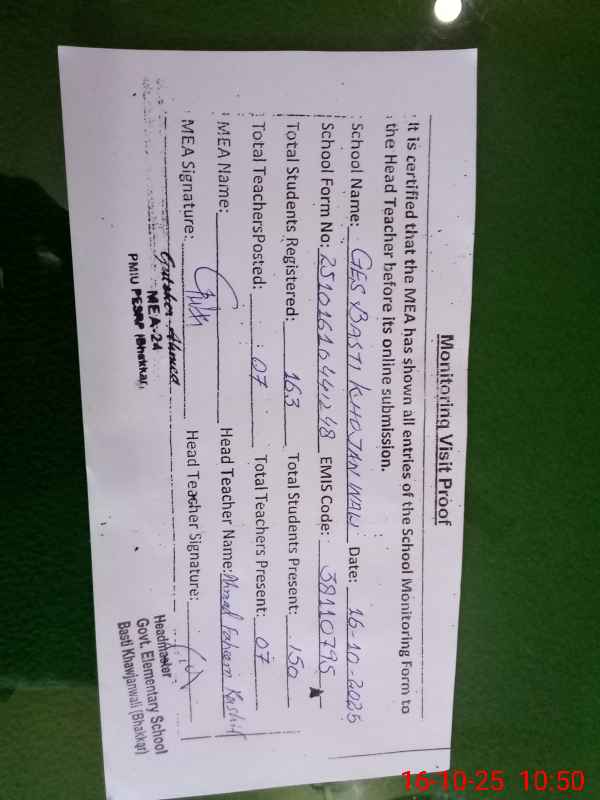 Monitoring Visit Proof
It is certified that the MEA has shown all entries of the School Monitoring Form to
the Head Teacher before its online submission.
School Name: GES BASTI KHOJAN WALI Date: 16-10-2025
School Form No: EMIS Code: 38110795
Total Students Registered: 163 Total Students Present: 150
Total TeachersPosted: 07 Total Teachers Present: 07
MEA Name: Head Teacher Name: Ahmad Kashif
MEA Signature: Head Teacher Signature:
Ahmad
MEA-24
PMIU PESRP (Bhakkar)
Headmaster
Govt. Elementary School
Basti Khawjanwali (Bhakkar)
16-10-25 10:50